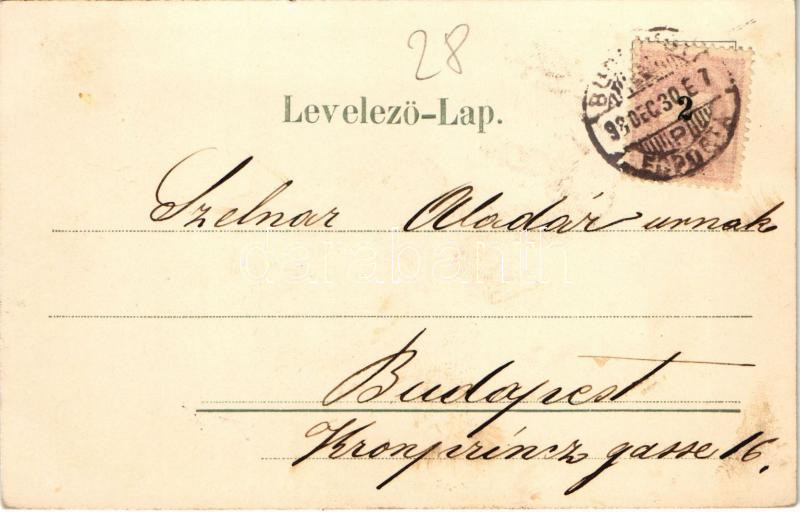 28
Levelező-Lap.
2
98 DEC. 30. E 7
Szelnar Aladár urnak
darabanth
Budapest
Kronprincz gasse 16.